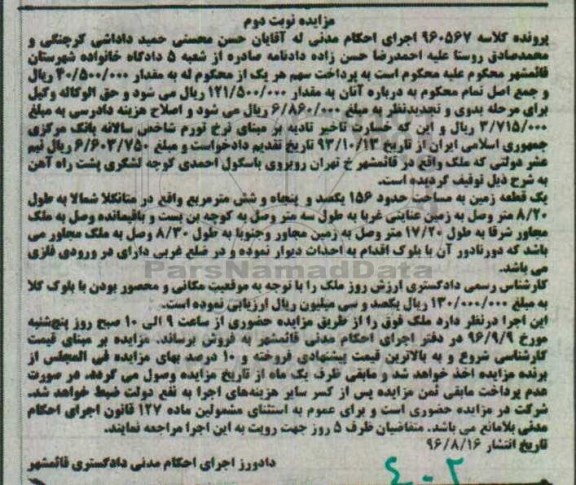 مزایده نوبت دوم
پرونده کلاسه ۹۶۰۵۶۷ اجرای احکام مدنی له آقایان حسن محسنی حمید داداشی کرچنگی و
محمدصادق روستا علیه احمدرضا حسن زاده دادنامه صادره از شعبه ۵ دادگاه خانواده شهرستان
قائمشهر محکوم علیه محکوم است به پرداخت سهم هر یک از محکوم له به مقدار ۴۰/۵۰۰/۰۰۰ ریال
و جمع اصل تمام محکوم به درباره آنان به مقدار ۱۲۱/۵۰۰/۰۰۰ ریال می شود و حق الوکاله وکیل
برای مرحله بدوی و تجدیدنظر به مبلغ ۶/۸۶۰/۰۰۰ ریال می شود و اصلاح هزینه دادرسی به مبلغ
۳/۷۱۵/۰۰۰ ریال و این که خسارت تاخیر تادیه بر مبنای نرخ تورم شاخص سالانه بانک مرکزی
جمهوری اسلامی ایران از تاریخ ۹۳/۱۰/۱۳ تاریخ تقدیم دادخواست و مبلغ ۶/۶۰۳/۷۵۰ ریال نیم
عشر دولتی که ملک واقع در قائمشهر خ تهران روبروی باسکول احمدی کوچه لشگری پشت راه آهن
به شرح ذیل توقیف گردیده است.
یک قطعه زمین به مساحت حدود ۱۵۶ یکصد و پنجاه و شش مترمربع واقع در متانکلا شمالا به طول
۸/۲۰ متر وصل به زمین عنایتی غربا به طول سه متر وصل به کوچه بن بست و باقیمانده وصل به ملک
مجاور شرقا به طول ۱۷/۲۰ متر وصل به زمین مجاور وجنوبا به طول ۸/۳۰ وصل به ملک مجاور می
باشد که دورنادور آن با بلوک اقدام به احداث دیوار نموده و در ضلع غربی دارای در ورودی فلزی
می باشد.
ParsNamadData
کارشناس رسمی دادگستری ارزش روز ملک را با توجه به موقعیت مکانی و محصور بودن با بلوک کلا
به مبلغ ۱۳۰/۰۰۰/۰۰۰ ریال یکصد و سی میلیون ریال ارزیابی نموده است.
این اجرا درنظر دارد ملک فوق را از طریق مزایده حضوری از ساعت ۹ الی ۱۰ صبح روز پنج‌شنبه
مورخ ۹۶/۹/۹ در دفتر اجرای احکام مدنی قائمشهر به فروش برساند. مزایده بر مبنای قیمت
کارشناسی شروع و به بالاترین قیمت پیشنهادی فروخته و ۱۰ درصد بهای مزایده فی المجلس از
برنده مزایده اخذ خواهد شد و مابقی ظرف یک ماه از تاریخ مزایده وصول می گردد، در صورت
عدم پرداخت مابقی ثمن مزایده پس از کسر سایر هزینه‌های اجرا به نفع دولت ضبط خواهد شد.
شرکت در مزایده حضوری است و برای عموم به استثنای مشمولین ماده ۱۲۷ قانون اجرای احکام
مدنی بلامانع می باشد. متقاضیان ظرف ۵ روز جهت رویت به این اجرا مراجعه نمایند.
تاریخ انتشار ۹۶/۸/۱۶
دادورز اجرای احکام مدنی دادگستری قائمشهر
۴۰۲